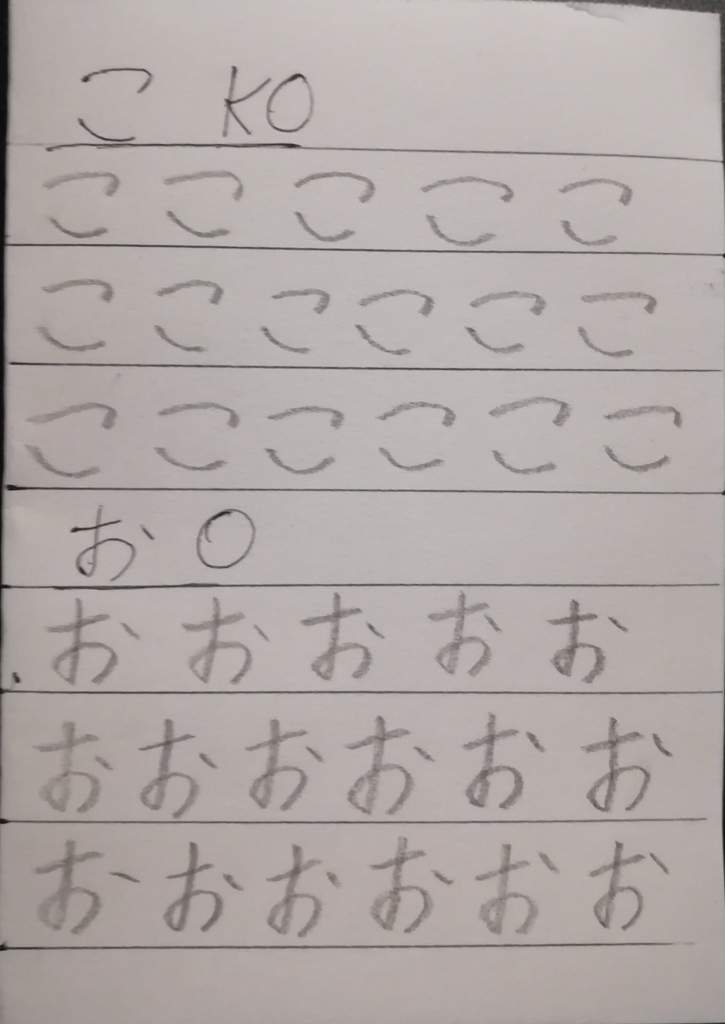 こ KO
こ こ こ こ こ
こ こ こ こ こ こ
こ こ こ こ こ こ
お O
お お お お お
お お お お お お
お お お お お お